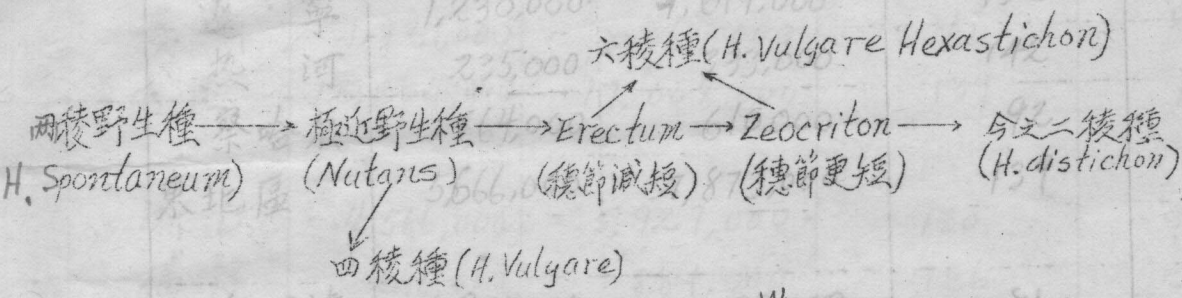 六稜種(H. Vulgare Hexastichon)
兩稜野生種 → 極近野生種 → Erectum → Zeocriton → 今之二稜種
H. Spontaneum) (Nutans) (穗節減短) (穗節更短) (H. distichon)
四稜種(H. Vulgare)